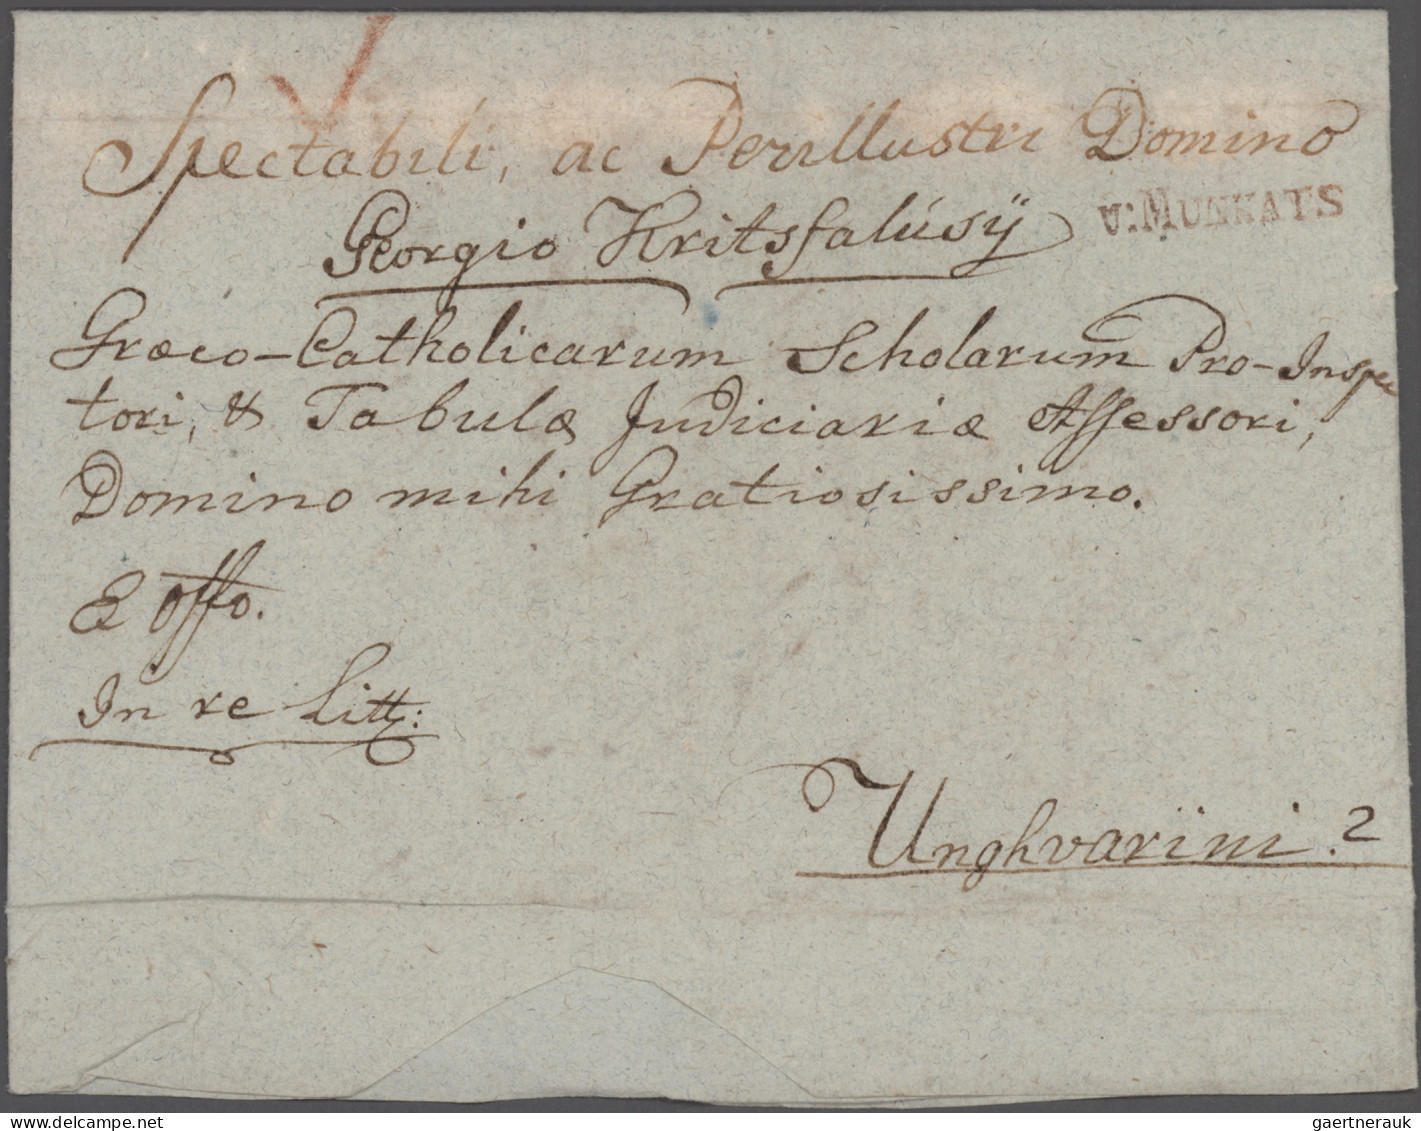 Spectabili, ac Perillustri Domino
v:MUNKATS
Georgio Kritsfalúsÿ
Græco-Catholicarum Scholarum Pro-Inspec
tori, & Tabulæ Judiciariæ Assessori,
Domino mihi Gratiosissimo.
E Offo.
In re Litt:
Unghvarini. 2
gaertnerauk